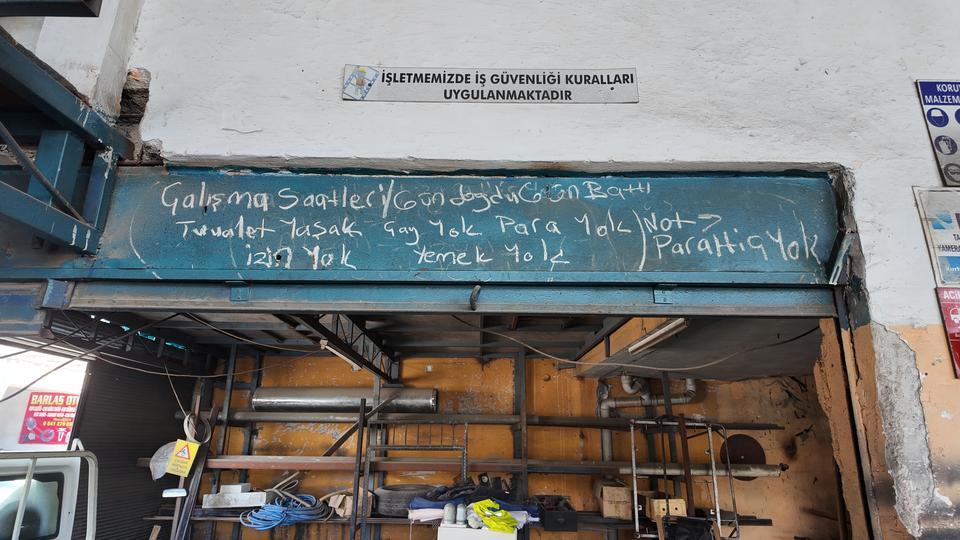 İŞLETMEMİZDE İŞ GÜVENLİĞİ KURALLARI
UYGULANMAKTADIR
Çalışma Saatleri/Gün doğdu Gün Battı
Tuvalet Yasak Çay Yok Para Yok
izin Yok Yemek Yok
Not →
Parattiq Yok
KORU
MALZEM
TA
KAMERA
ACİ
BARLAS OT